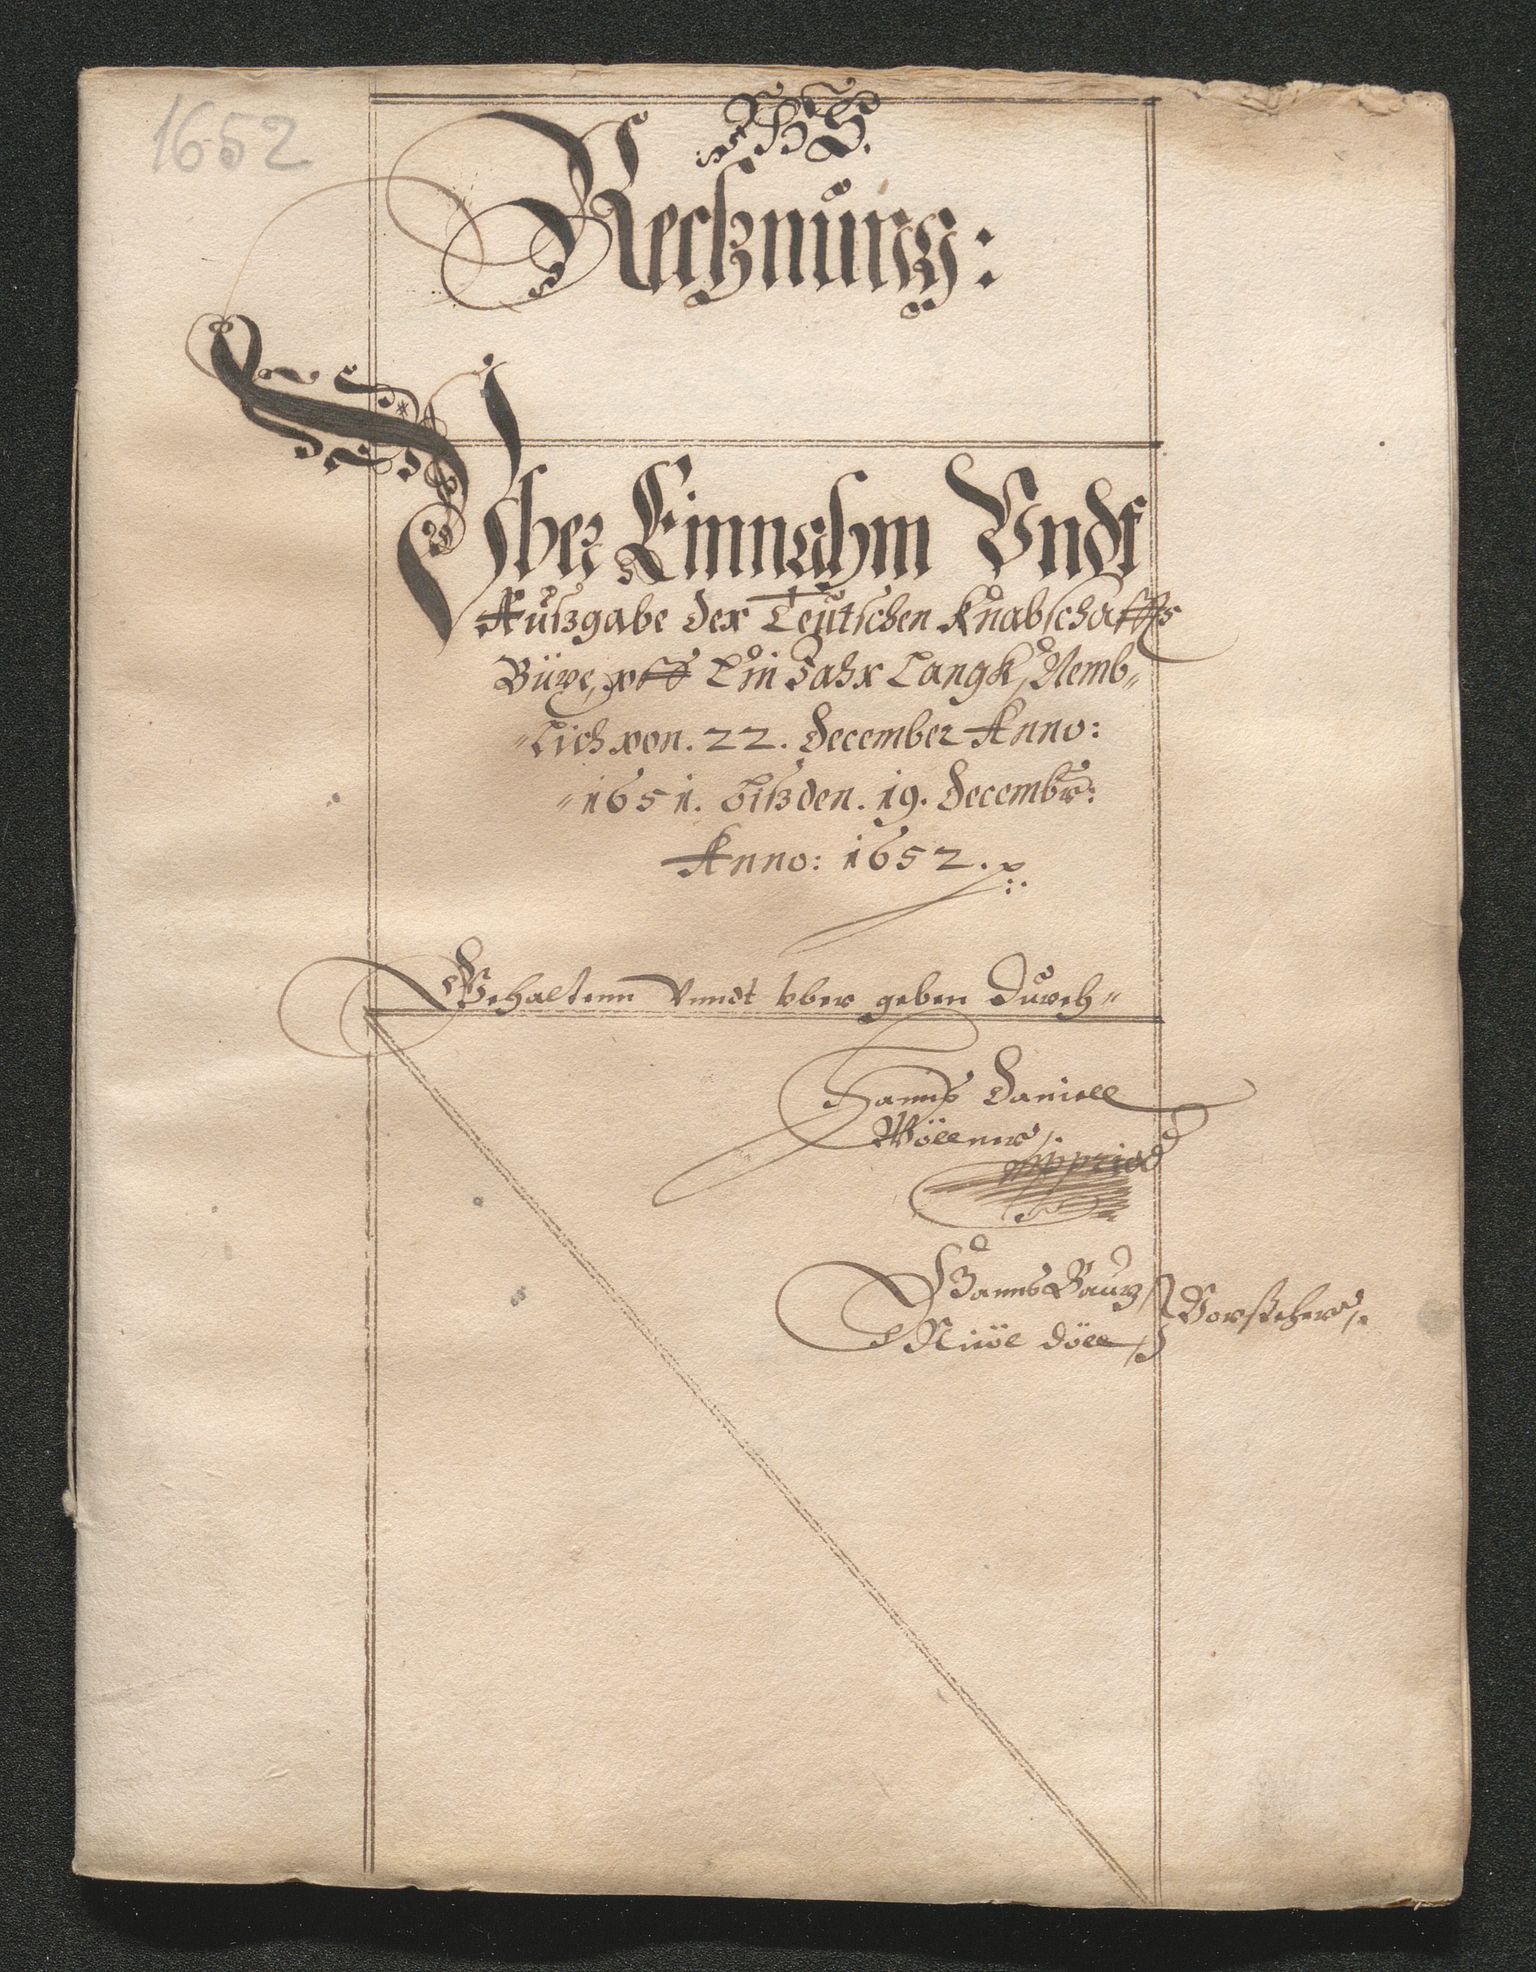 1652
Rechnung:
Vber Einnahm Vndt
Außgabe der Teutschen Knabschaffts
Büxe, vff Ein Jahr Langk, Nemb„
„lich von. 22. December Anno:
„1651. biß den. 19. Decembr:
Anno: 1652.
Gehaltenn Vnndt vber geben Durch„
Hanns Daniell
Wöllner
mppria
Hanns Baur
Nicol Döll
Vorsteher